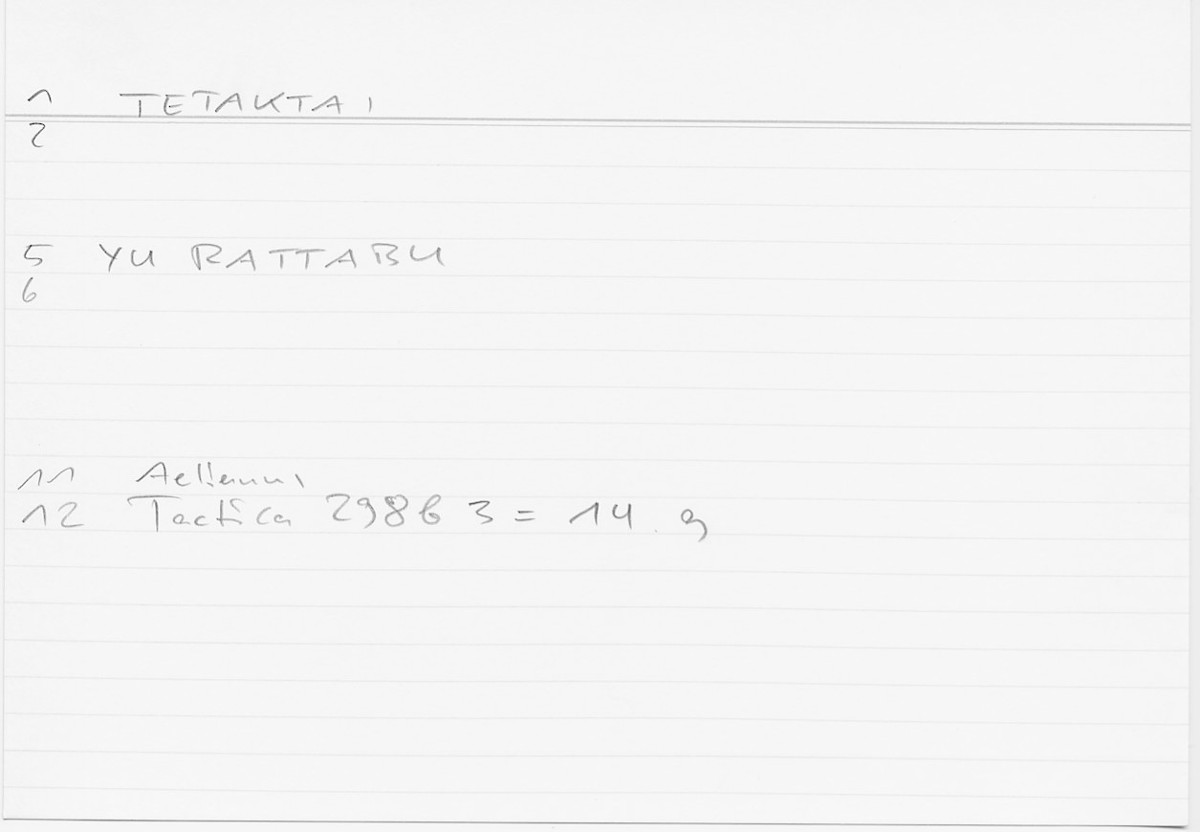 1 TETAKTAI
2
5 YU RATTABU
6
11
12 Tactica 2986 3 = 14. 9